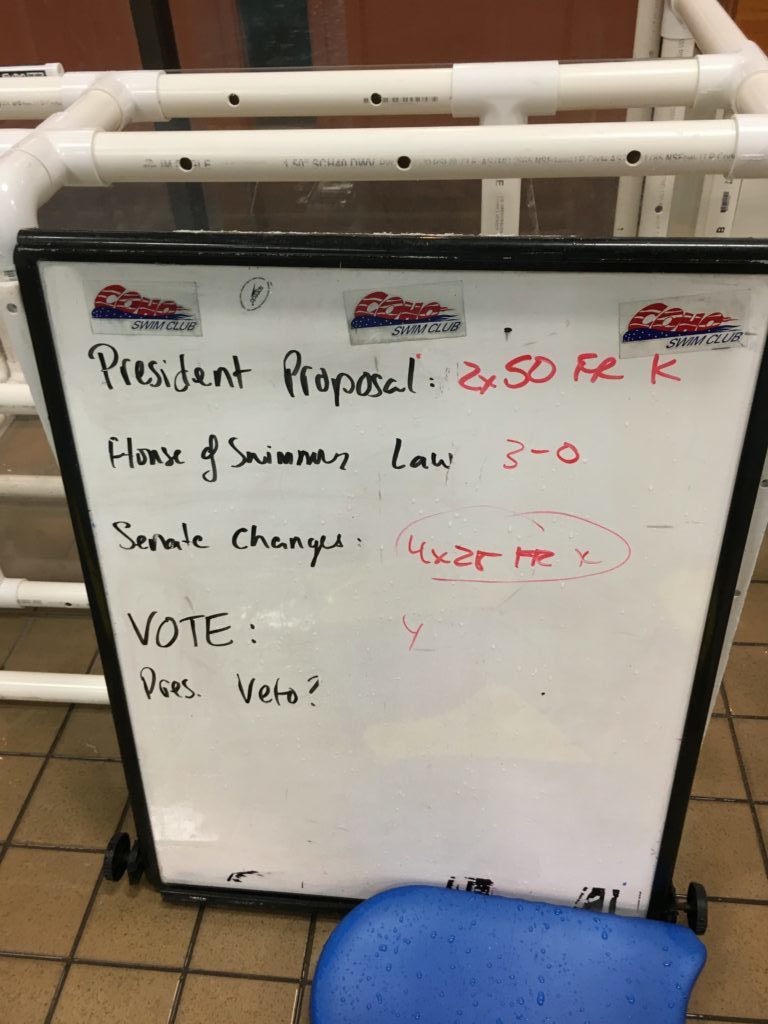 COHO SWIM CLUB
COHO SWIM CLUB
COHO SWIM CLUB
President Proposal: 2x50 FR K
House of Swimmers Law 3-0
Senate Changes: 4x25 FR K
VOTE: Y
Pres. Veto?